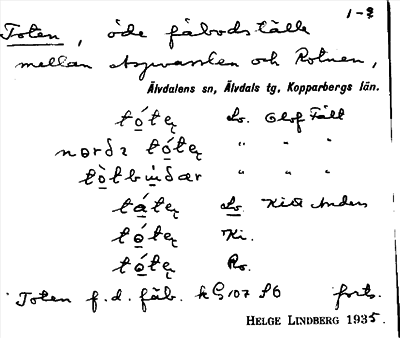 1-2
Toten, öde fäbodställe
mellan Asgvarden och Rotnen,
Älvdalens sn, Älvdals tg, Kopparbergs län.
tótęɳ Lo. Olof Fält
norda tótęɳ " " "
tòtbʉ̀ndær " " "
tátęɳ Lo. Anders
tótęɳ Ki.
tótęɳ Ro.
Toten f.d. fäb. kG 107 SO forts.
HELGE LINDBERG 1935.